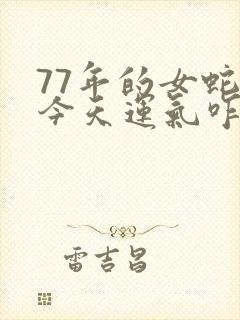 77年的女蛇
今天運氣咋
雷吉昌